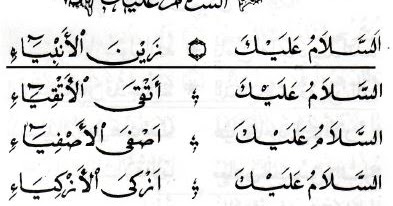 السلام عليك
اَلسَّلَامُ عَلَيْكَ زَيْنَ الْأَنْبِيَاءِ
اَلسَّلَامُ عَلَيْكَ أَتْقَى الْأَتْقِيَاءِ
اَلسَّلَامُ عَلَيْكَ اَصْفَى الْأَصْفِيَاءِ
اَلسَّلَامُ عَلَيْكَ اَزْكَى الْأَزْكِيَاءِ